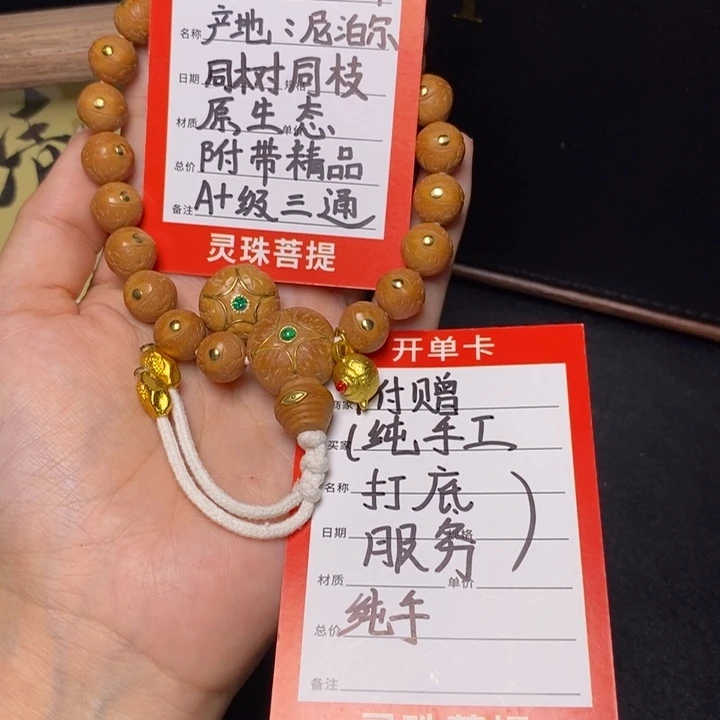 名称 产地:尼泊尔
日期 同树同枝 规格
材质 原生态 单价
总价 附带精品
备注 A+级三通
灵珠菩提
开单卡
商家 付赠
买家 (纯手工
名称 打底
日期 服务) 规格
材质 单价
总价 纯手
备注
灵珠菩提